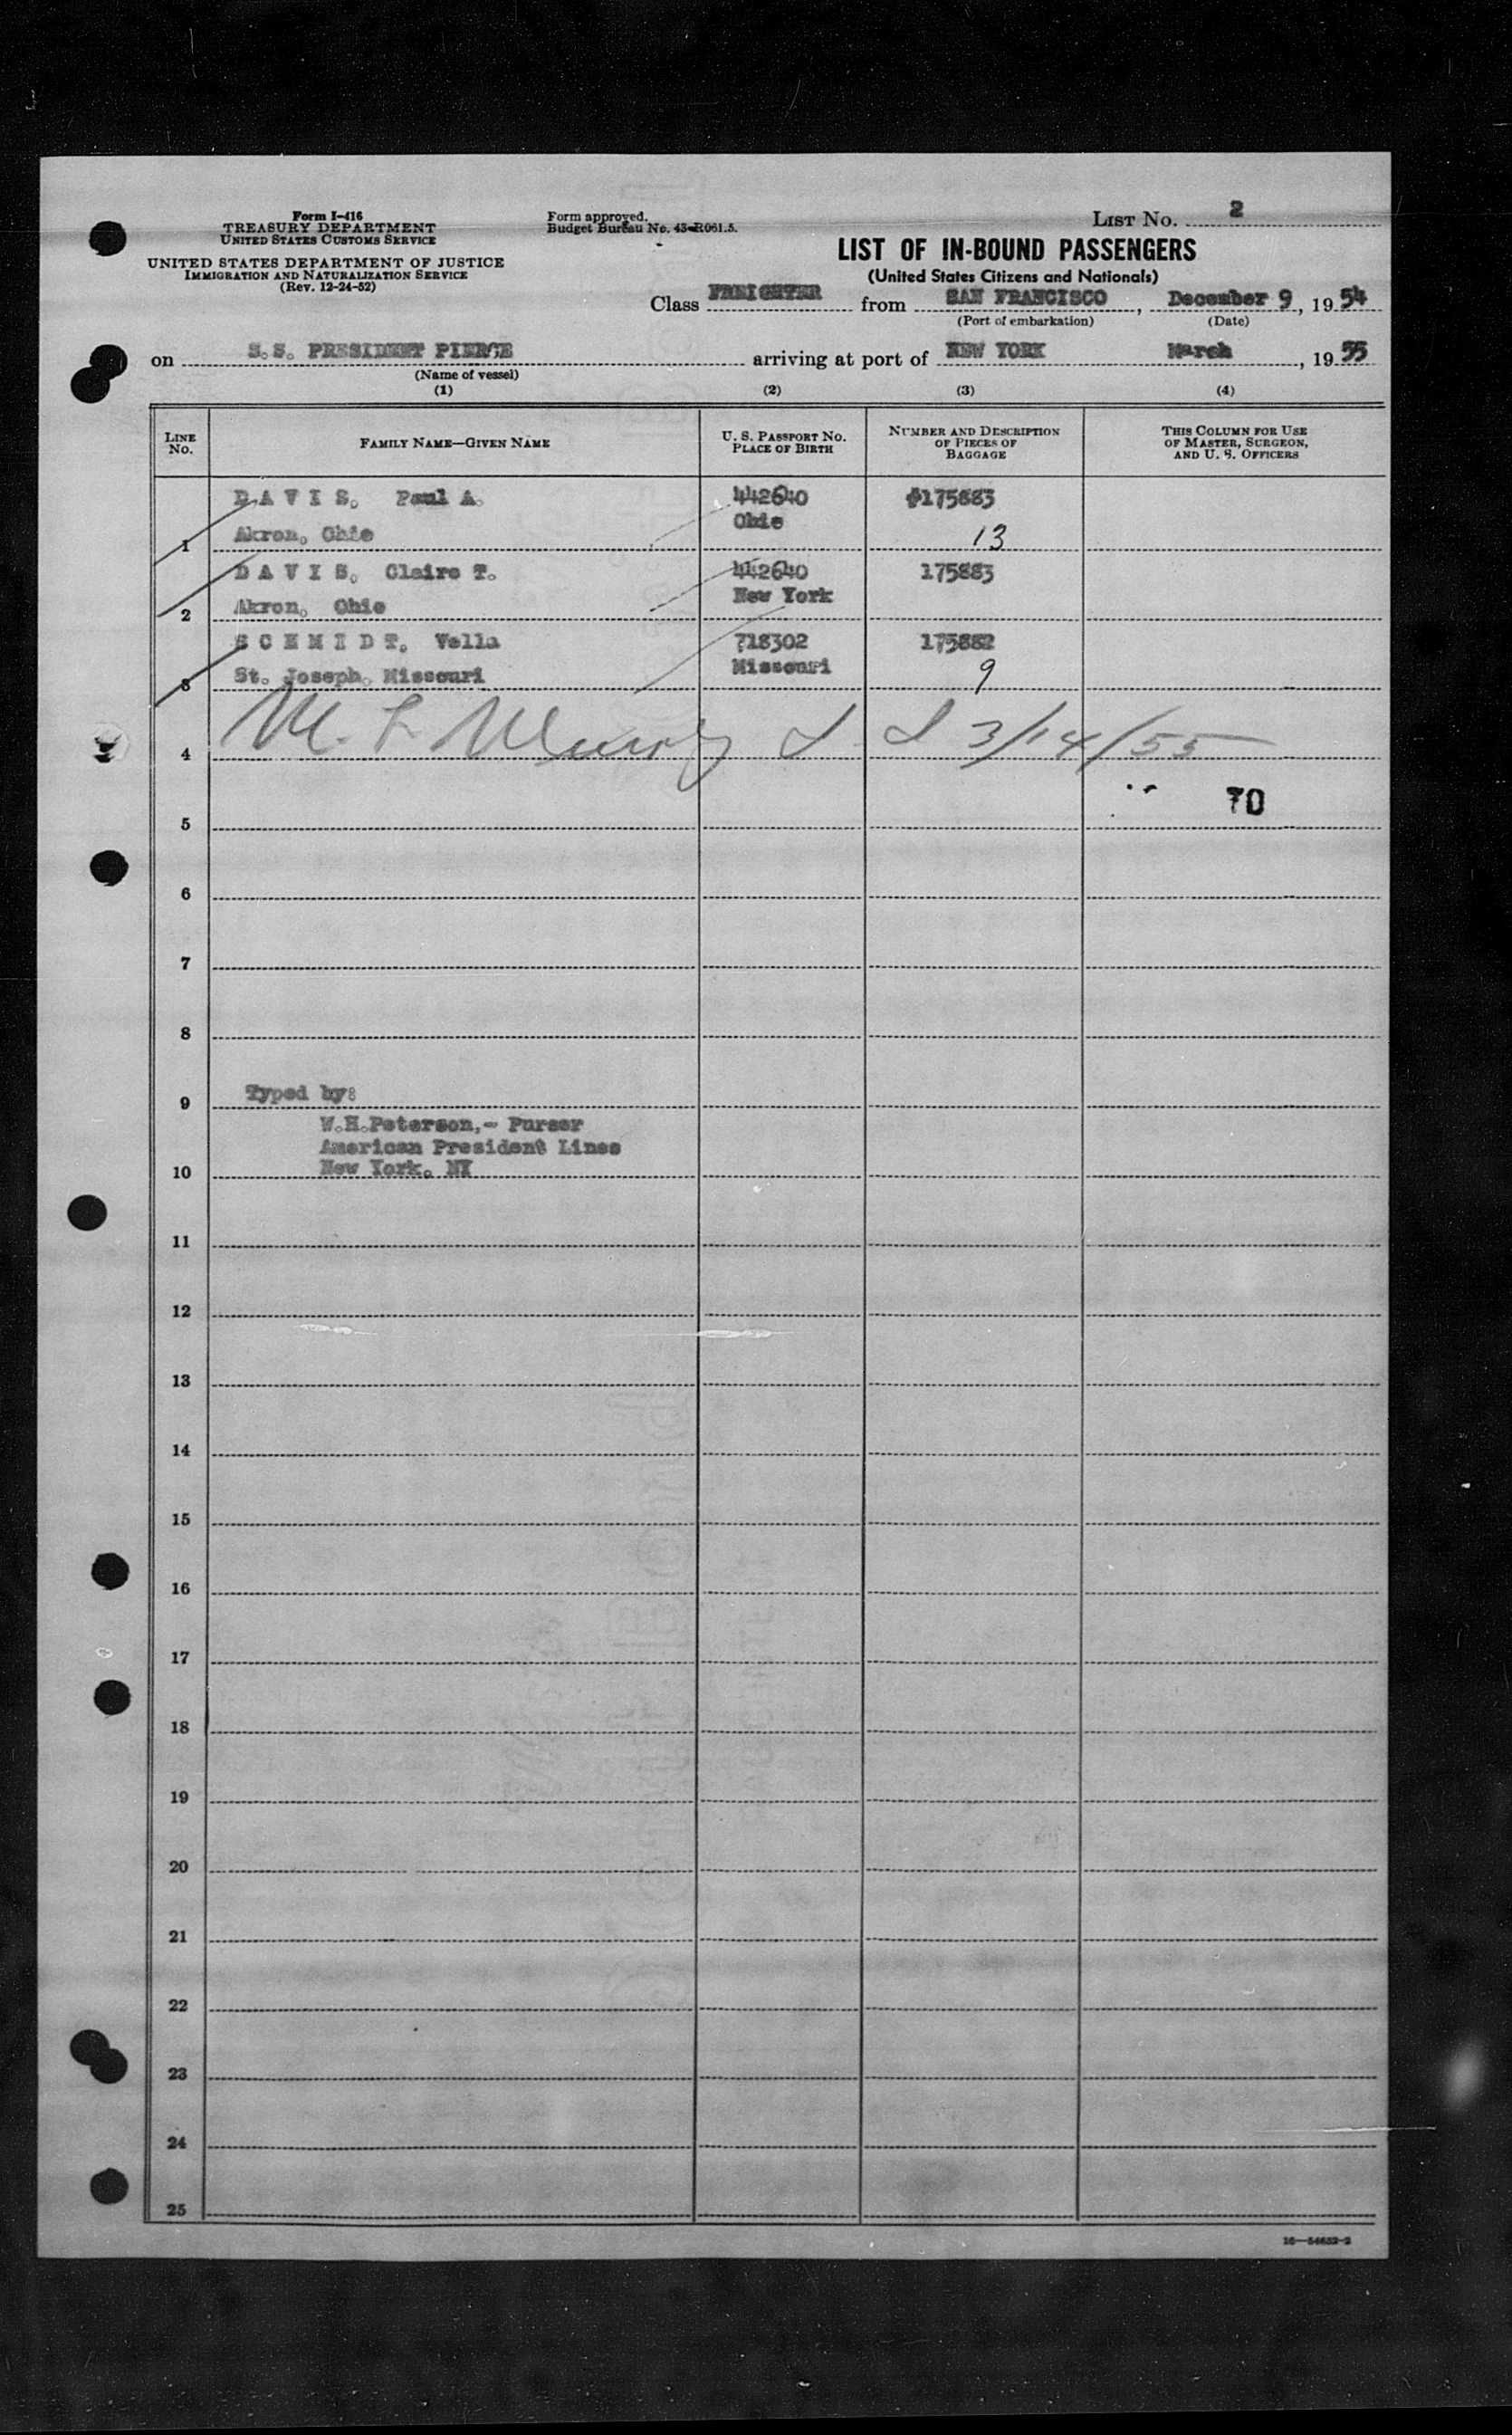 Form I-416
TREASURY DEPARTMENT
UNITED STATES CUSTOMS SERVICE
UNITED STATES DEPARTMENT OF JUSTICE
IMMIGRATION AND NATURALIZATION SERVICE
(Rev. 12-24-52)
Form approved.
Budget Bureau No. 43-R061.5.
LIST No. 2
LIST OF IN-BOUND PASSENGERS
(United States Citizens and Nationals)
Class FREIGHTER from SAN FRANCISCO, December 9, 1954
(Port of embarkation) (Date)
on S.S. PRESIDENT PIERCE arriving at port of NEW YORK March, 1955
(Name of vessel)
(1) (2) (3) (4)
LINE No. FAMILY NAME—GIVEN NAME U. S. PASSPORT No. PLACE OF BIRTH NUMBER AND DESCRIPTION OF PIECES OF BAGGAGE THIS COLUMN FOR USE OF MASTER, SURGEON, AND U. S. OFFICERS
D A V I S, Paul A. 442640 #175883
Ohio
1 Akron, Ohio 13
D A V I S, Claire T. 442640 175883
New York
2 Akron, Ohio
S C H M I D T, Vella 718302 175882
Missouri
3 St. Joseph, Missouri 9
4 M. L 3/14/55
70
5
6
7
8
9 Typed by:
W.H.Peterson,- Purser
American President Lines
10 New York, NY
11
12
13
14
15
16
17
18
19
20
21
22
23
24
25
16—54632-2